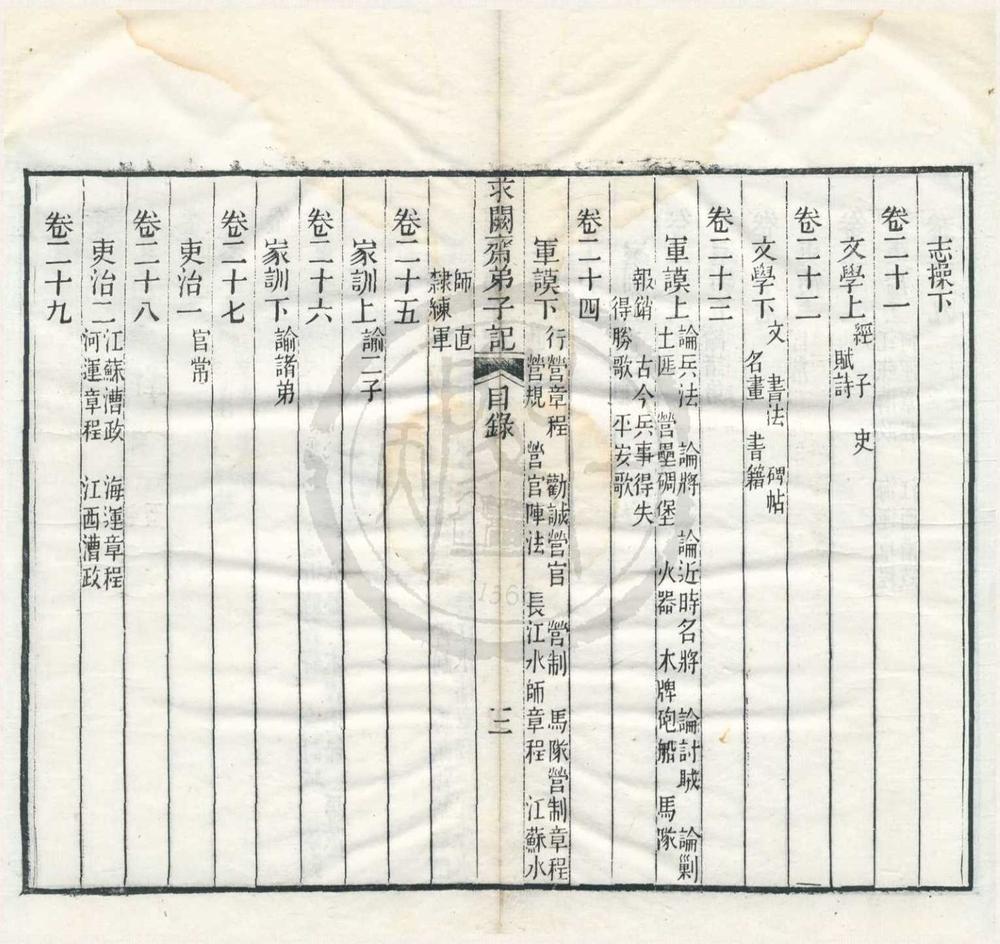 志操下
卷二十一
文學上 經 子 史
賦詩
卷二十二
文學下 文 書法 碑帖
名畫 書籍
卷二十三
軍謨上 論兵法 論將 論近時名將 論討賊 論剿
土匪 營壘碉堡 火器 木牌砲船 馬隊
報銷 古今兵事得失
得勝歌 平安歌
卷二十四
軍謨下 行營章程 勸誡營官 營制 馬隊營制章程
營規 營官陣法 長江水師章程 江蘇水
求闕齋弟子記 目錄 三
師 直
隸練軍
卷二十五
家訓上 諭二子
卷二十六
家訓下 諭諸弟
卷二十七
吏治一 官常
卷二十八
吏治二 江蘇漕政 海運章程
河運章程 江西漕政
卷二十九